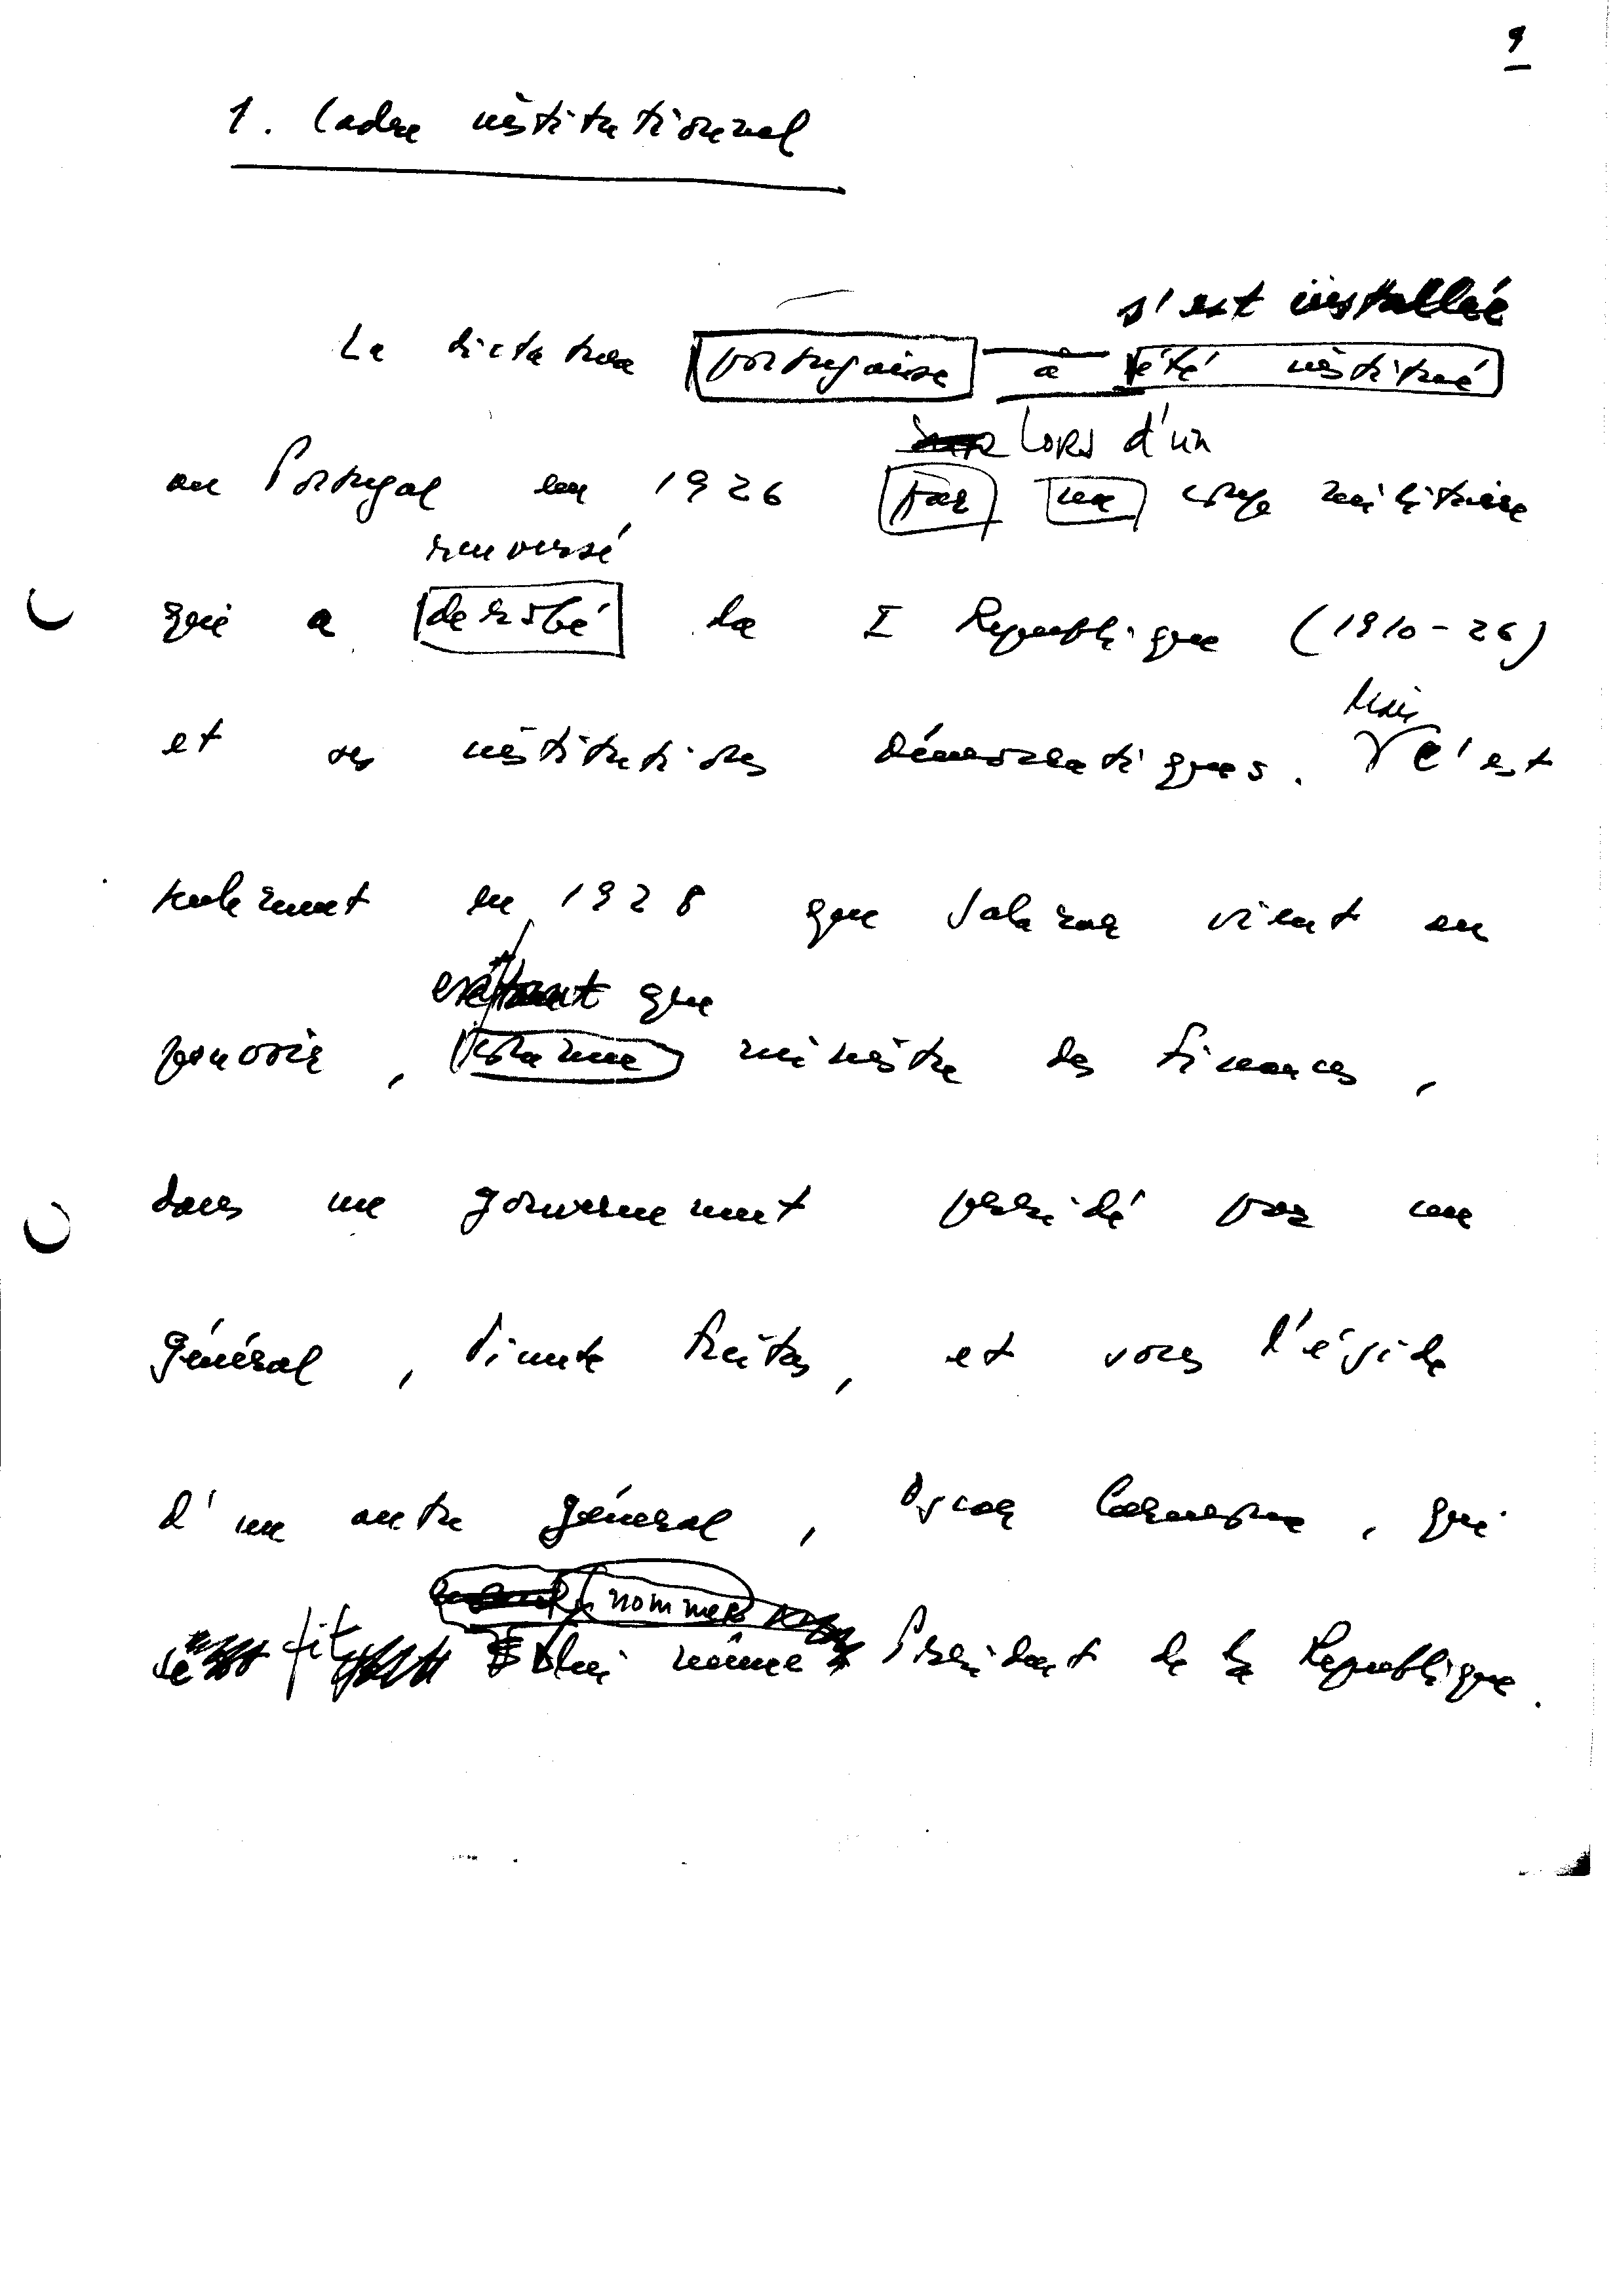 9
1. Cadre institutionnal
s'est installée
La dictature portugaise a été institué
lors d'un
au Portugal en 1926 par un coup militaire
renversé
qui a derobé la I Republique (1910-26)
Mais
et ses institutions démocratiques. c'est
seulement en 1928 que Salazar vient au
en tant que
pouvoir, comme ministre des finances,
dans un gouvernement présidé par un
général, Vicente Freitas, et sous l'égide
d'un autre général, Oscar Carmona, qui
nommer
se fit lui même Président de la Republique.